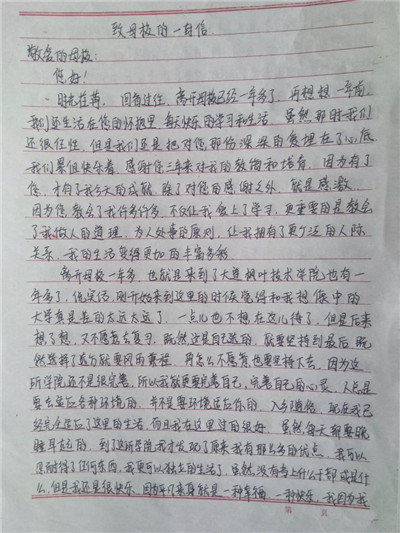 致母校的一封信
敬爱的母校:
您好!
时光荏苒,回首过往,离开母校已经一年多了,再想想一年前,
我们还生活在您的怀抱里,每天快乐的学习和生活,虽然那时我们
还很任性,但是我们还是把对您那份深深的爱埋在了心底
我们累但快乐着,感谢您三年来对我的教饰和培育,因为有了
您,才有了我今天的成就,除了对您的感谢之外,就是感激,
因为您教会了我许多许多,不仅让我爱上了学习,更重要的是教会
了我做人的道理,为人处事的原则,让我拥有了更广泛的人际
关系,我的生活变得更加的丰富多彩。
离开母校一年多,也就是来到了大连枫叶技术学院也有一
年多了,说实话,刚开始来到这里的时候觉得和我想像中的
大学真是差的太远太了,一点儿也不想在这儿待了,但是后来
想了想,又不愿意去复习,既然这是自己选的,就要坚持到最后,既
然选择了远方就要风雨兼程,再怎么不愿意也要坚持下去,因为这
所学院还不是很完善,所以我就更要完善自己,完善自己的心灵,人总是
要去适应各种环境的,并不是要环境适应你的,入乡随俗,现在我已
经完全适应了这里的生活,而且我在这里过的很好,虽然每天都要晚
睡早起的,到了这所学院我才发现了原来我有那么多的优点,我可以
忍耐得了任何东西,我更可以独立的生活了,虽然没有考上什么干部或是什
么,但是我还是很快乐,因为平凡本身就是一种幸福,一种快乐,我因为我
第 页